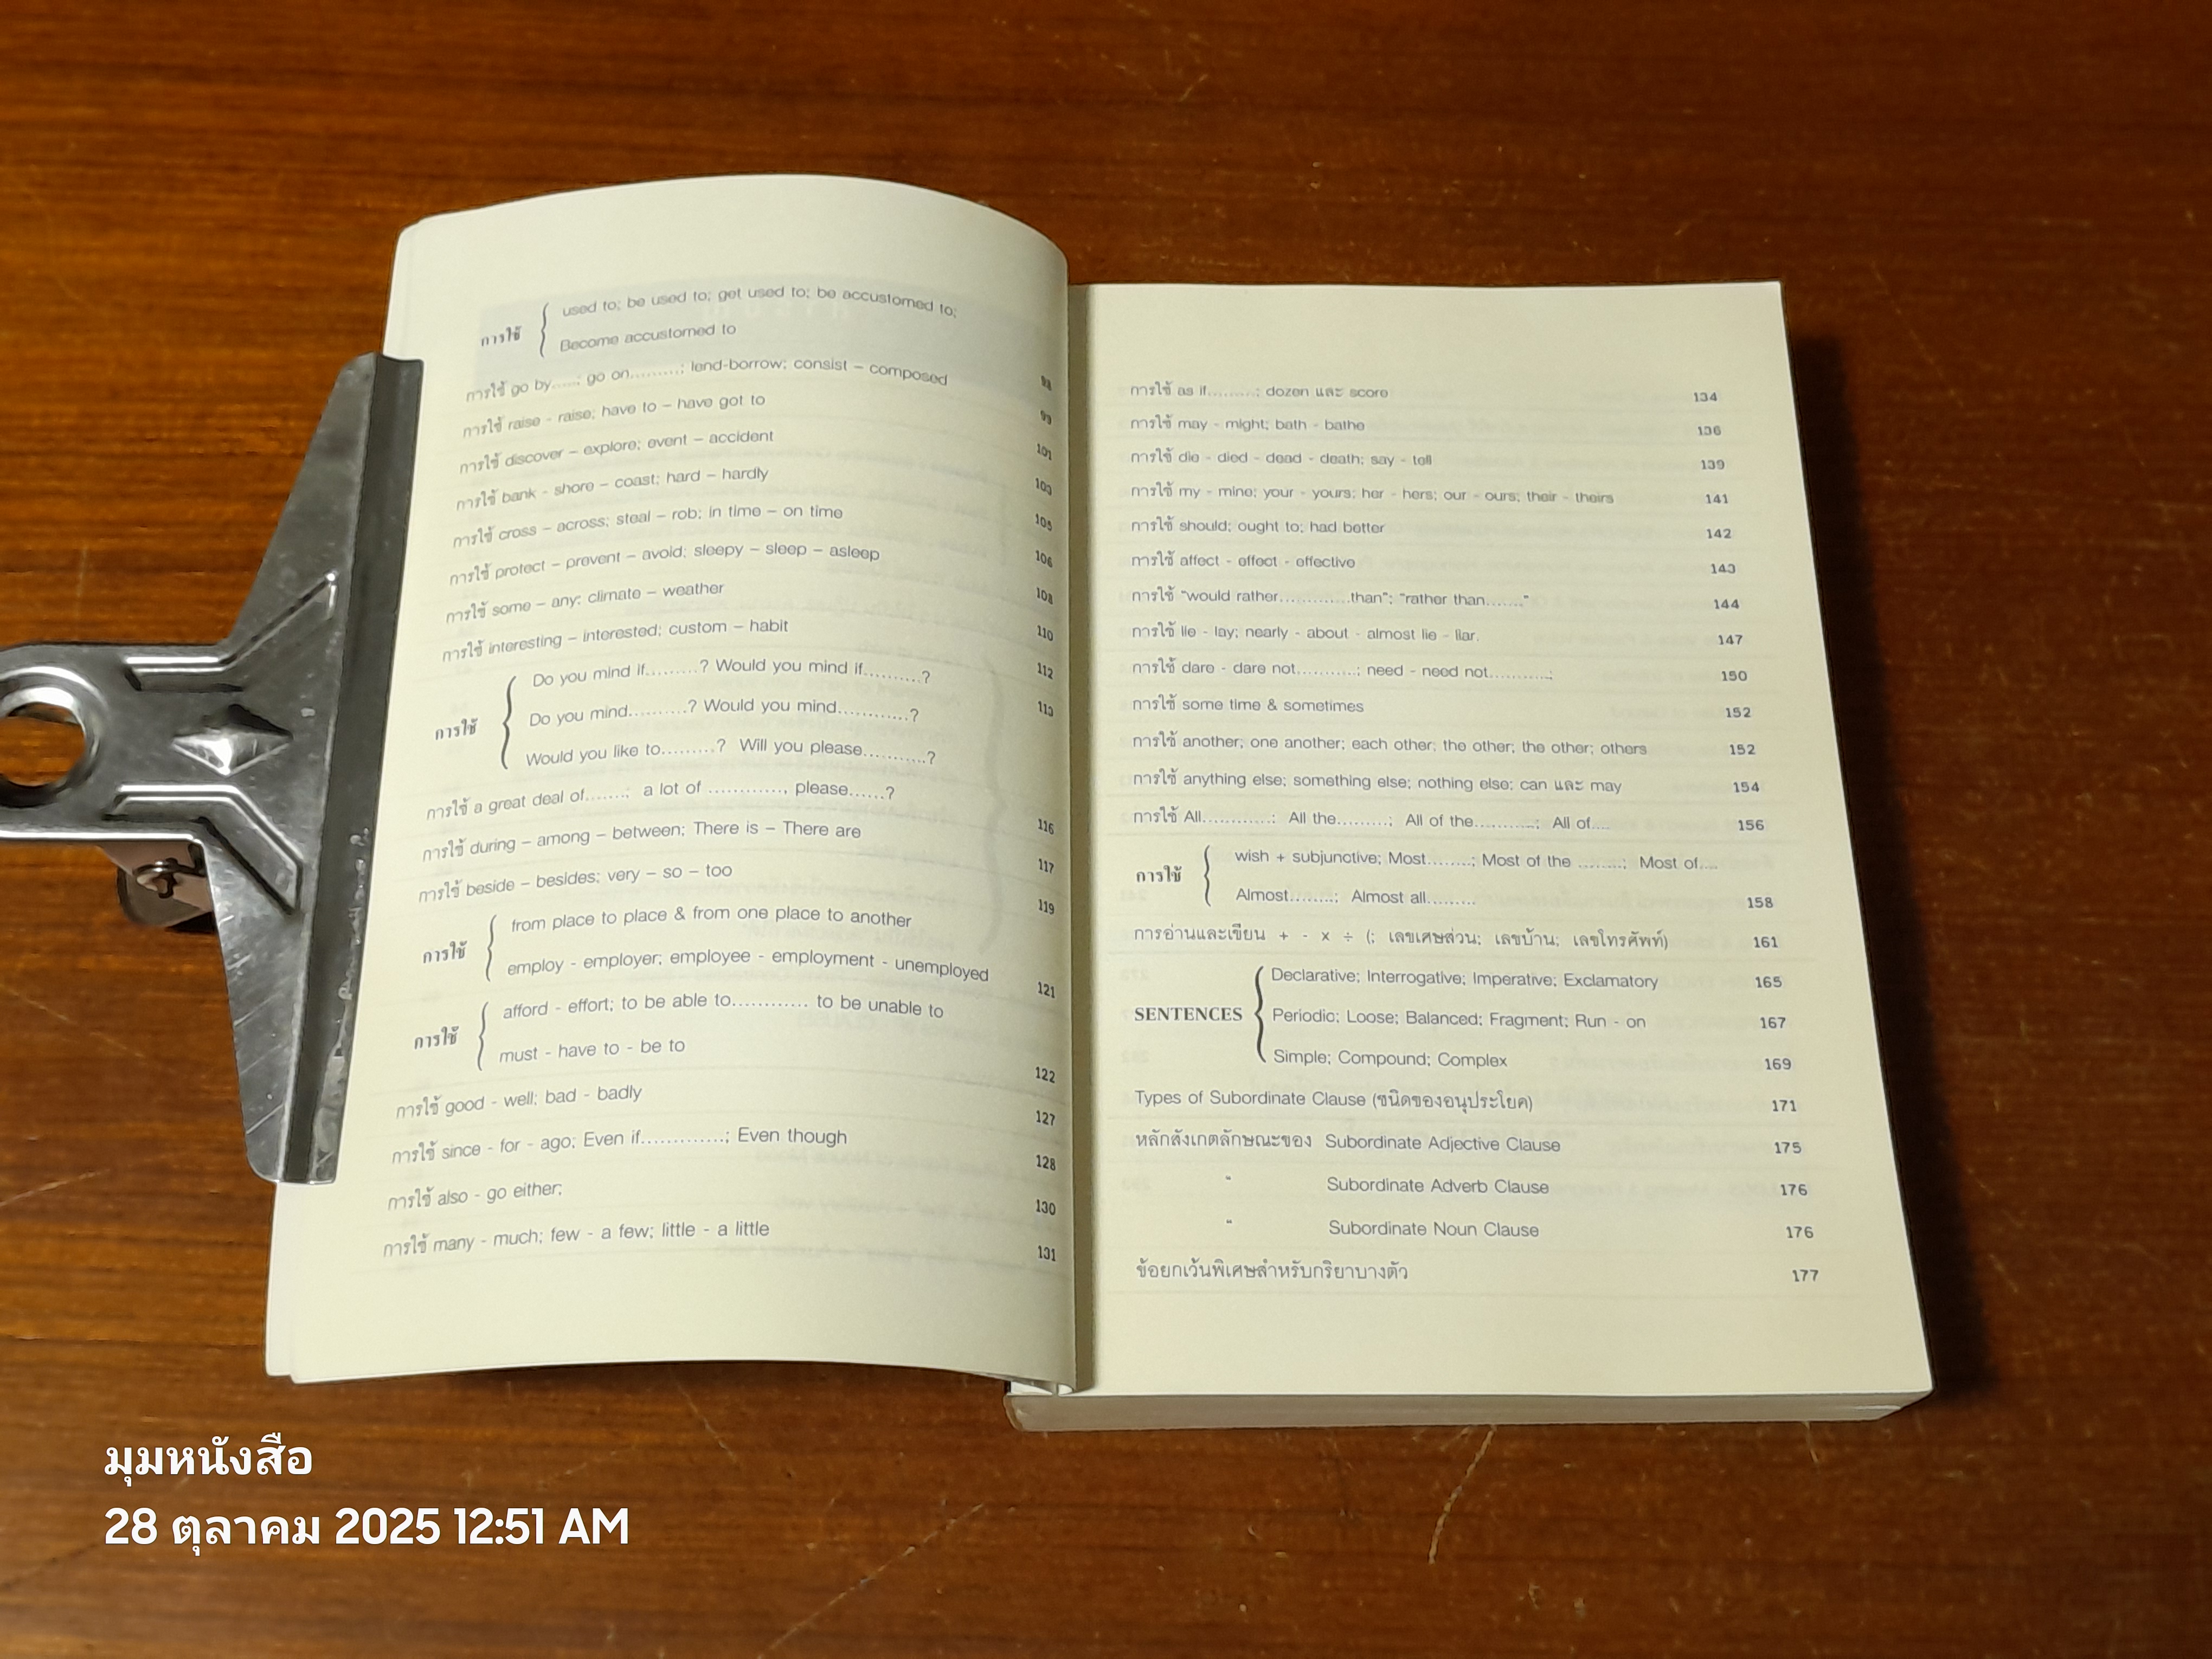 การใช้ { used to; be used to; get used to; be accustomed to;
Become accustomed to 98
การใช้ go by.....; go on.........; lend-borrow; consist – composed 99
การใช้ raise - raise; have to – have got to 101
การใช้ discover – explore; event – accident 103
การใช้ bank - shore – coast; hard – hardly 105
การใช้ cross – across; steal – rob; in time – on time 106
การใช้ protect – prevent – avoid; sleepy – sleep – asleep 108
การใช้ some – any; climate – weather 110
การใช้ interesting – interested; custom – habit 112
การใช้ { Do you mind if.........? Would you mind if..........? 113
Do you mind..........? Would you mind............?
Would you like to.........? Will you please...........?
การใช้ a great deal of.......; a lot of ............, please......? 116
การใช้ during – among – between; There is – There are 117
การใช้ beside – besides; very – so – too 119
การใช้ { from place to place & from one place to another
employ - employer; employee - employment - unemployed 121
การใช้ { afford - effort; to be able to............ to be unable to
must - have to - be to 122
การใช้ good - well; bad - badly 127
การใช้ since - for - ago; Even if.............; Even though 128
การใช้ also - go either; 130
การใช้ many - much; few - a few; little - a little 131
การใช้ as if.........; dozen และ score 134
การใช้ may - might; bath - bathe 136
การใช้ die - died - dead - death; say - tell 139
การใช้ my - mine; your - yours; her - hers; our - ours; their - theirs 141
การใช้ should; ought to; had better 142
การใช้ affect - effect - effective 143
การใช้ "would rather.............than"; "rather than......." 144
การใช้ lie - lay; nearly - about - almost lie - liar. 147
การใช้ dare - dare not...........; need - need not...........; 150
การใช้ some time & sometimes 152
การใช้ another; one another; each other; the other; the other; others 152
การใช้ anything else; something else; nothing else; can และ may 154
การใช้ All............; All the.........; All of the...........; All of.... 156
การใช้ { wish + subjunctive; Most........; Most of the ........; Most of....
Almost........; Almost all......... 158
การอ่านและเขียน + - x ÷ (; เลขเศษส่วน; เลขบ้าน; เลขโทรศัพท์) 161
SENTENCES { Declarative; Interrogative; Imperative; Exclamatory 165
Periodic; Loose; Balanced; Fragment; Run - on 167
Simple; Compound; Complex 169
Types of Subordinate Clause (ชนิดของอนุประโยค) 171
หลักสังเกตลักษณะของ Subordinate Adjective Clause 175
" Subordinate Adverb Clause 176
" Subordinate Noun Clause 176
ข้อยกเว้นพิเศษสำหรับกริยาบางตัว 177
มุมหนังสือ
28 ตุลาคม 2025 12:51 AM